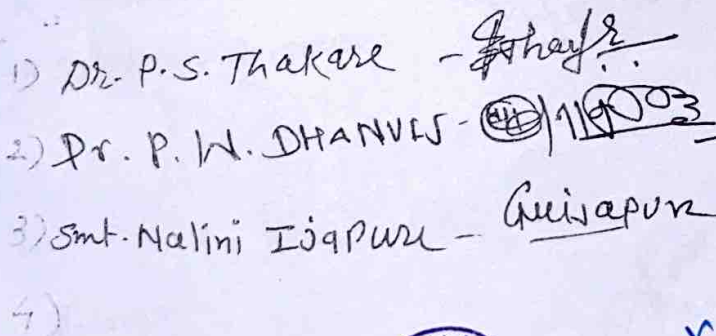 1) Dr. P. S. Thakare -
2) Dr. P. W. DHANVIJ -
3) Smt. Nalini Ijapure -
4)